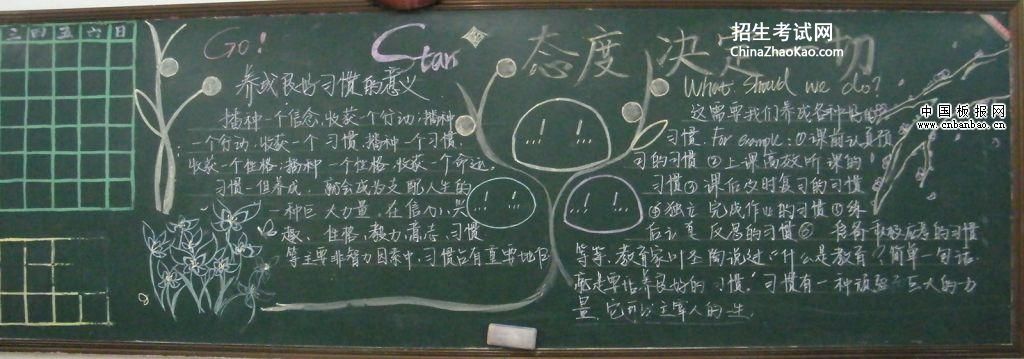 三四五六日
Go!
Star
态度决定一切
招生考试网
ChinaZhaoKao.com
中国板报网
www.cnbanbao.cn
养成良好习惯的意义
播种一个信念,收获一个行动;播种
一个行动,收获一个习惯;播种一个习惯,
收获一个性格;播种一个性格,收获一个命运.
习惯一但养成,就会成为支配人生的
一种巨大力量,在信力、兴
趣、性格、毅力、意志、习惯
等主要非智力因素中,习惯占有重要地位
What should we do?
这需要我们养成各种良好的
习惯. For example: ①课前认真预
习的习惯 ②上课高效听课的
习惯③课后及时复习的习惯
④独立完成作业的习惯⑤练
后认真反思的习惯⑥
的习惯
等等.教育家叶圣陶说过"什么是教育?简单一句话,
就是要培养良好的习惯."习惯有一种顽强巨大的力
量,它可以主宰人的一生.